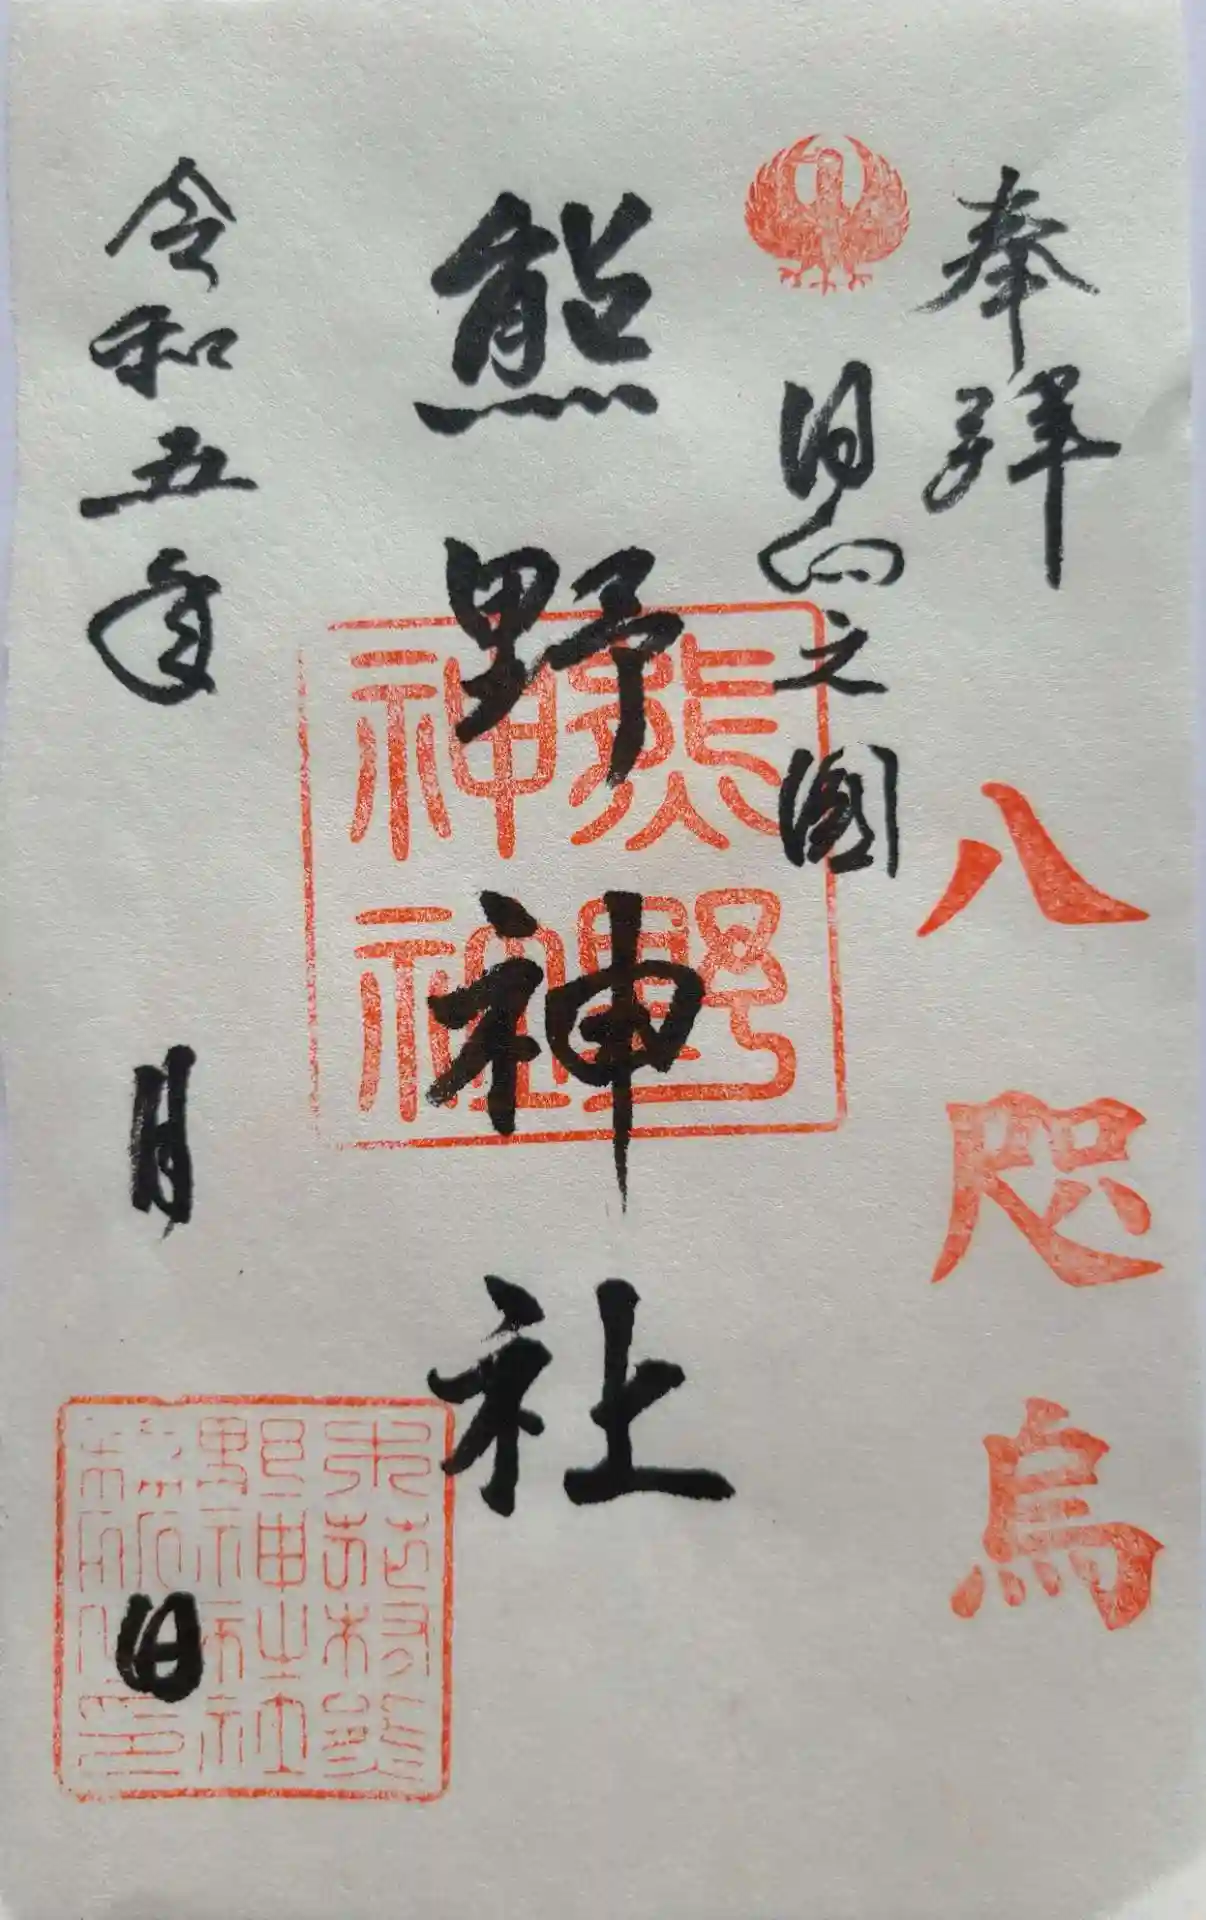 奉拝
八咫烏
之國
熊野神社
熊野
神社
令和五年
月
日